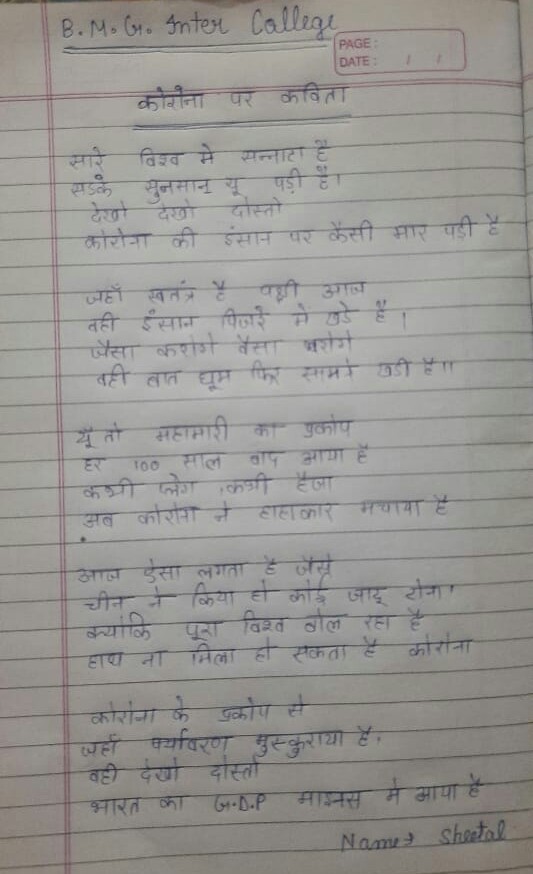 B.M.G. Inter College
PAGE:
DATE: / /
कोरोना पर कविता
सारे विश्व मे सन्नाटा है
सडकें सुनसान यू पडी है।
देखो देखो दोस्तो
कोरोना की इंसान पर कैसी मार पडी है
जहाँ स्वतंत्र है पक्षी आज
वही इंसान पिंजरे में खडे है।
जैसा करोगे वैसा भरोगे
वही बात घूम फिर सामने खडी है।।
यूँ तो महामारी का प्रकोप
हर 100 साल बाद आया है
कभी प्लेग, कभी हैजा
अब कोरोना ने हाहाकार मचाया है
आज ऐसा लगता है जैसे
चीन ने किया हो कोई जादू टोना'
क्योकि पूरा विश्व बोल रहा है
हाथ ना मिला हो सकता है कोरोना
कोरोना के प्रकोप से
जहाँ पर्यावरण मुस्कुराया है,
वही देखो दोस्तो
भारत का G.D.P माइनस मे आया है
Name→ Sheetal